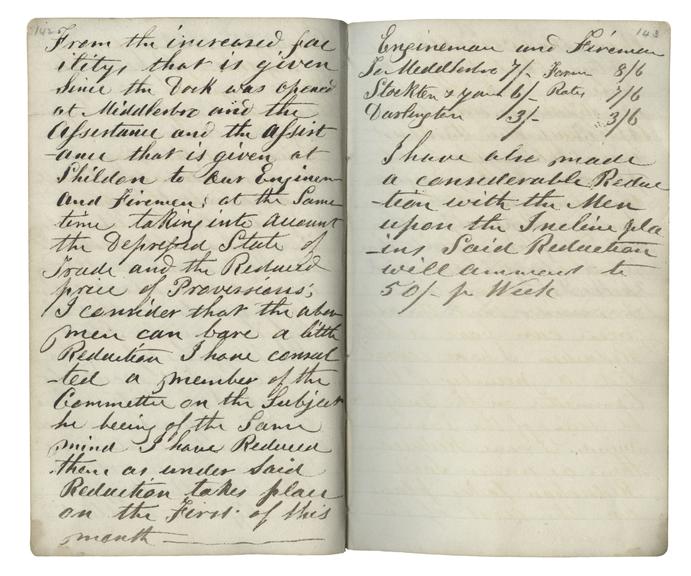 142
From the increased fac
ilitys that is given
Since the Dock was opened
at Middlesbro and the
Assistance and the assist
-ance that is given at
Shildon to our Enginemen
and Firemen; at the Same
time taking into account
the Depressed State of
Trade and the Reduced
price of Provessions;
I consider that the above
men can bare a little
Reduction I have consul
-ted a member of the
Committe on the Subject
he beeing of the Same
mind I have Reduced
them as under Said
Reduction takes place
on the First of this
month
143
Engineman and Fireman
To Meddlesbro 7/- Former 8/6
Stockton & yarm 6/- Rates 7/6
Darlington 3/- 3/6
I have also made
a considerable Reduc
-tion with the Men
upon the Incline pla
-ins Said Reduction
will ammount to
50/- pr Week